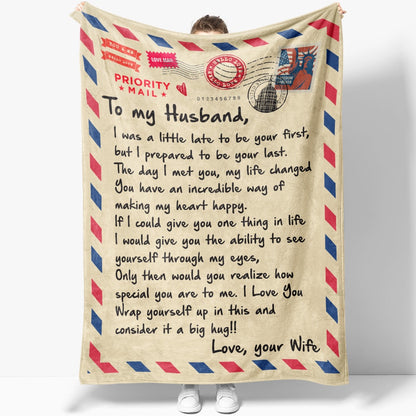 LOVE MAIL
PRIORITY
MAIL
0123456789
To my Husband,
I was a little late to be your first,
but I prepared to be your last.
The day I met you, my life changed
You have an incredible way of
making my heart happy.
If I could give you one thing in life
I would give you the ability to see
yourself through my eyes,
Only then would you realize how
special you are to me. I Love You
Wrap yourself up in this and
consider it a big hug!!
Love, your Wife